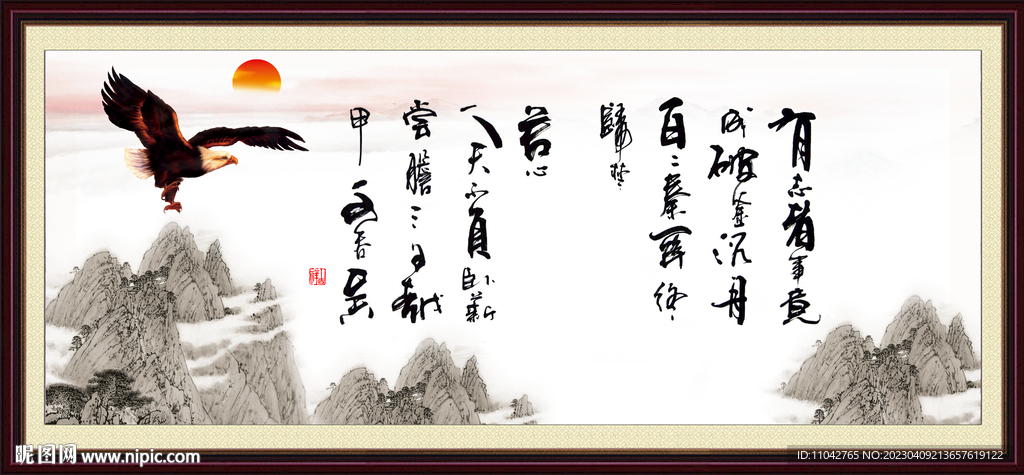 有志者事竟
成破釜沉舟
百二秦關終
歸楚
苦心
人天不負卧薪
嘗膽三千越
甲可吞吴
昵图网 www.nipic.com
ID:11042765 NO:20230409213657619122